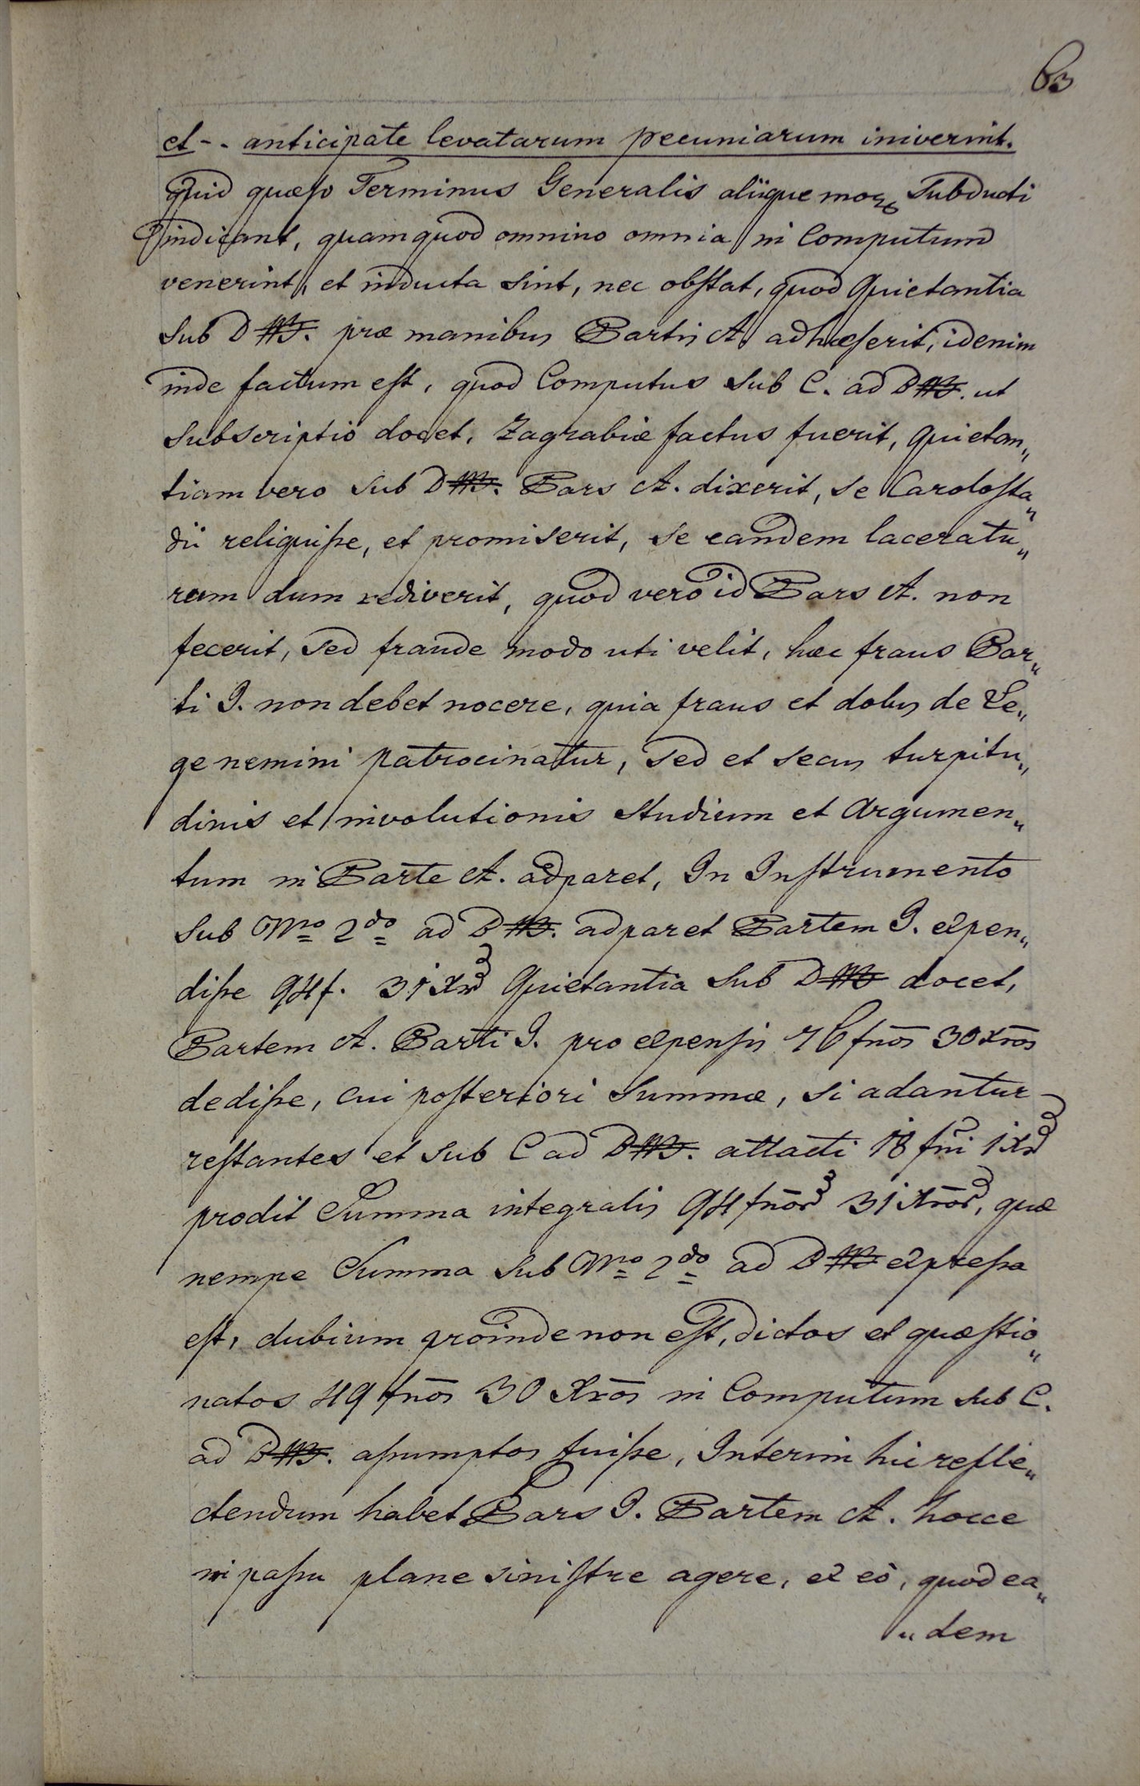 63
et -- anticipate levatarum pecuniarum iniverint.
Quid quæso Terminus Generalis aliique Subducti
indicant, quam quod omnino omnia in Computum
venerint, et inducta sint, nec obstat, quod Quietantia
sub D præ manibus Partis A. adhæserit, id enim
inde factum est, quod Computus sub C. ad ut
subscriptio docet, Zagrabiæ factus fuerit, quietan„
tiam vero sub D Pars A. dixerit, se Carolosta„
dii reliquisse, et promiserit, se eandem laceratu„
ram dum rediverit, quod vero id Pars A. non
fecerit, sed fraude modo uti velit, hæc fraus Par„
ti I. non debet nocere, quia fraus et dolus de Le„
ge nemini patrocinatur, sed et secus turpitu„
dinis et involutionis studium et Argumen„
tum in Parte A. adparet, In Instrumento
sub Nro 2do ad adparet Partem I. expen„
disse 94 f. 31 Quietantia sub D docet,
Partem A. Parti I. pro expensis 76 fnos 30 xros
dedisse, cui posteriori Summæ, si adantur
restantes et sub C ad attacti 18 fni 1
prodit Summa integralis 94 31 quæ
nempe Summa sub Nro 2do ad expressa
est, dubium proinde non est, dictos et quæstio„
natos 49 fnos 30 xros in Computum sub C.
ad assumptos fuisse, Interim hic refle„
ctendum habet Pars I. Partem A. hocce
in passu plane sinistre agere, ex eò, quod ea„
„dem